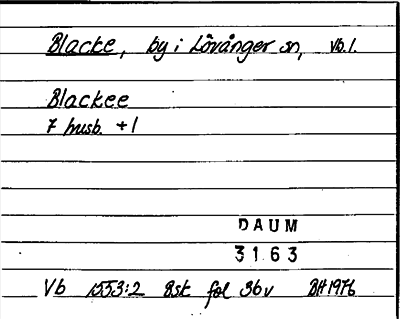 Blacke, by i Lövånger sn, Vb.l.
Blackee
7 husb. +1
DAUM
3163
Vb 1553:2 Bsk fol 36v BH 1976